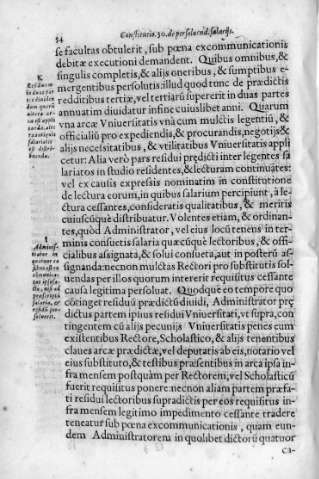 54 Constitutio. 50. de persoluend. salarijs.
se facultas obtulerit, sub pœna excommunicationis
debitæ executioni demandent. Quibus omnibus, &
singulis completis, & alijs oneribus, & sumptibus e-
mergentibus persolutis: illud quod tunc de prædictis
redditibus tertiæ, vel tertiarũ supererit in duas partes
annuatim diuidatur infine cuiuslibet anni. Quarum
vna arcæ Vniuersitatis vnà cum mulctis legentiũ, &
officialiũ pro expediendis, & procurandis, negotijs &
alijs necessitatibus, & vtilitatibus Vniuersitatis appli
cetur: Alia verò pars residui prędicti inter legentes sa
lariatos in studio residentes, & lecturam continuates:
vel ex causis expressis nominatim in constitutione
de lectura eorum, in quibus salarium percipiunt, à le-
ctura cessantes, consideratis qualitatibus, & meritis
cuiuscũque distribuatur. Volentes etiam, & ordinan-
tes, quòd Administrator, vel eius locũ tenens in ter-
minis consuetis salaria quæcũque lectoribus, & offi-
cialibus assignata, & solui consueta, aut in posterũ as-
signanda: necnon mulctas Rectori pro substitutis sol-
uendas per illos quorum intererit requisitus cessante
causa legitima persoluat. Quodque eo tempore quo
cõtinget residuũ prædictũ diuidi, Administrator prę
dictus partem ipsius residui Vniuersitati, vt supra, con
tingentem cũ alijs pecunijs Vniuersitatis penes eum
existentibus Rectore, Scholastico, & alijs tenentibus
claues arcæ prædictæ, vel deputatis ab eis, notario vel
eius substituto, & testibus præsentibus in arca ipsa in-
fra mensem postquàm per Rectorem, vel Scholasticũ
fuerit requisitus ponere: necnon aliam partem præfa-
ti residui lectoribus supradictis per eos requisitus in-
fra mensem legitimo impedimento cessante tradere
teneatur sub pœna excommunicationis, quam eun-
dem Administratorem in quolibet dictorũ quatuor
ca-
K.